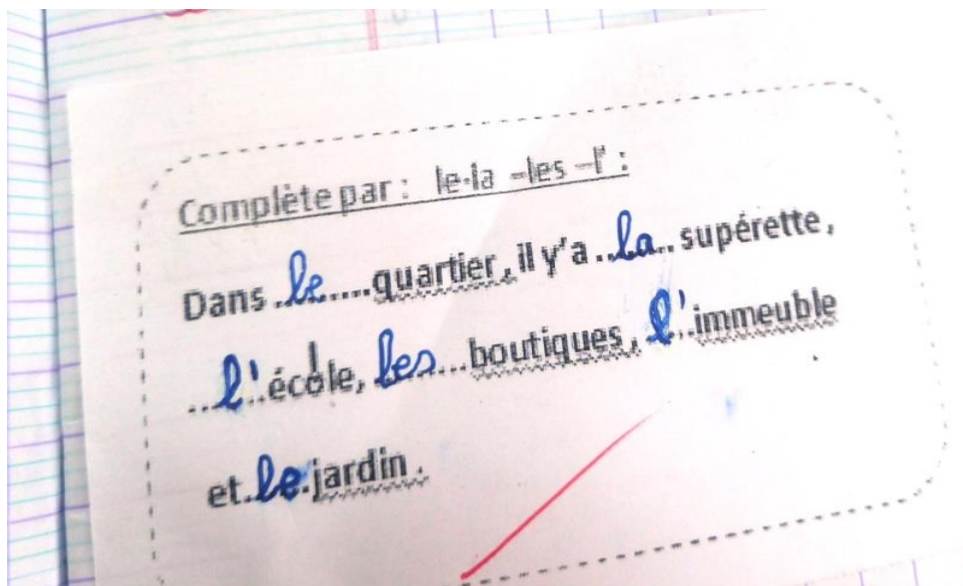 Complète par : le-la -les -l' :
Dans ..le......quartier, il y'a ..la.. supérette,
..l'..école, les...boutiques, l'.immeuble
et.le.jardin.